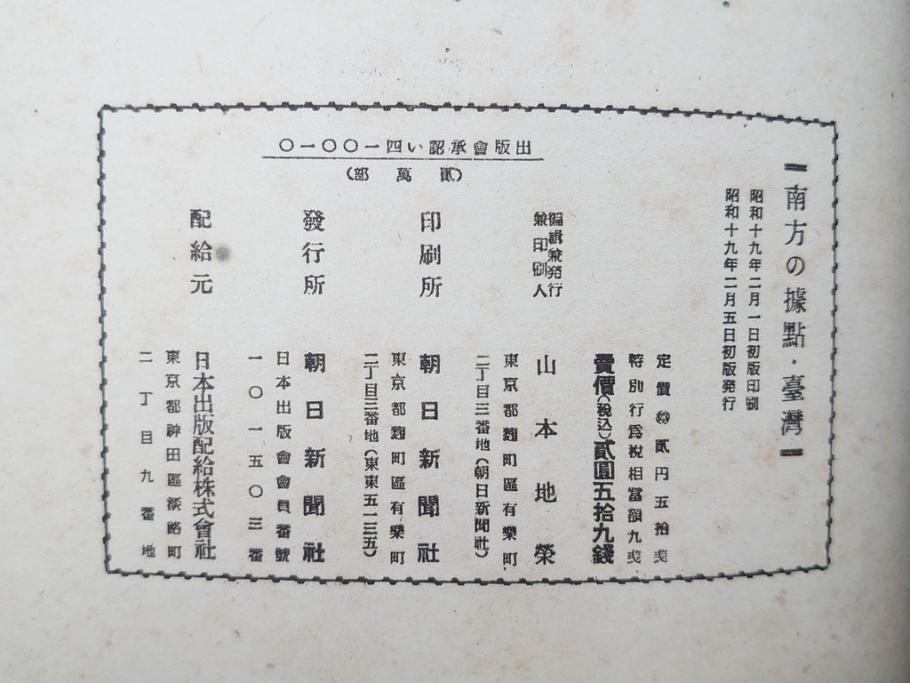 出版會承認い四一〇〇一〇
(貳萬部)
南方の據點・臺灣
昭和十九年二月一日初版印刷
昭和十九年二月五日初版発行
定價㊕貳円五拾銭
特別行為税相當額九銭
賣價(税込)貳圓五拾九錢
編輯兼発行
兼印刷人
山本地榮
東京都麴町區有樂町
二丁目三番地(朝日新聞社)
印刷所
朝日新聞社
東京都麴町區有樂町
二丁目三番地(東東五一三五)
發行所
朝日新聞社
日本出版會會員番號
一〇一五〇三番
配給元
日本出版配給株式會社
東京都神田區淡路町
二丁目九番地